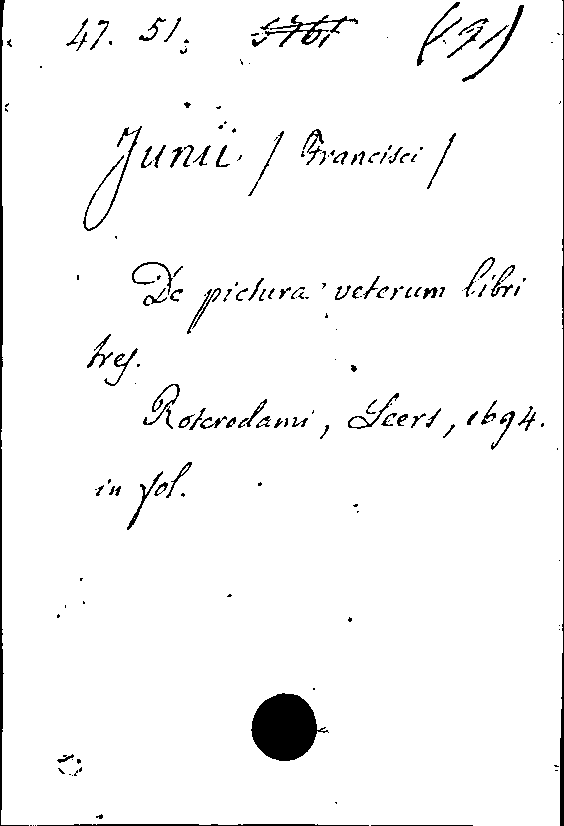 47. 51.
Junii / Francisci /
De pictura veterum libri
tres.
Roterodami, Leers, 1694.
in fol.